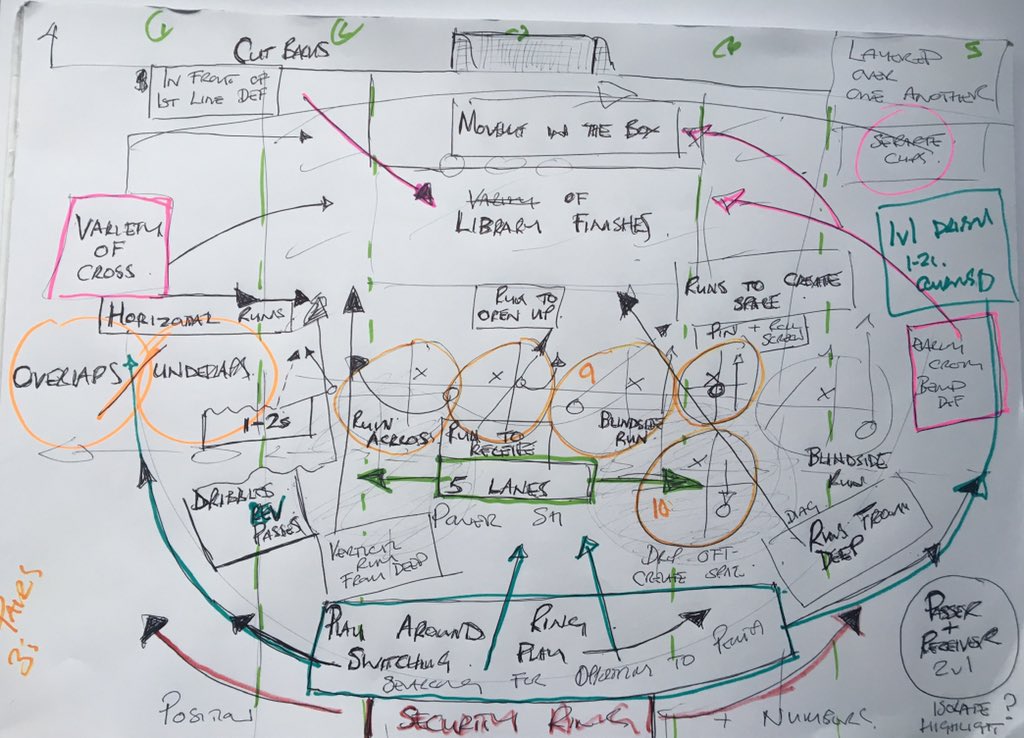 1
CUT BACKS
5
IN FRONT OF
1ST LINE DEF
LAYERED
OVER
ONE ANOTHER
MOVEMENT IN THE BOX
SEPARATE
CLIPS
VARIETY
OF
CROSS
VARIETY OF
LIBRARY FINISHES
1v1 
1-2s.
RUNS TO CREATE
SPACE
RUN TO
OPEN UP
HORIZONTAL RUNS
PIN +
SCREEN
EARLY
CROSS
DEF
OVERLAPS
UNDERLAPS
X
X
9
X
X
X
1-2s
RUN
ACROSS
RUN TO
RECEIVE
BLINDSIDE
RUN
BLINDSIDE
RUN
5 LANES
X
10
DRIBBLES
REV
PASSES
POWER
DIAG
RUNS FROM
DEEP
VERTICAL
RUN
FROM DEEP
DROP OFF-
CREATE
PLAY AROUND
SWITCHING
RING
PLAY
SEARCHING FOR OPPORTUNITY TO
PASSER
+
RECEIVER
2v1
PAIRS
3s
POSITION
SECURITY RING
+ NUMBERS.
ISOLATE
HIGHLIGHT.?